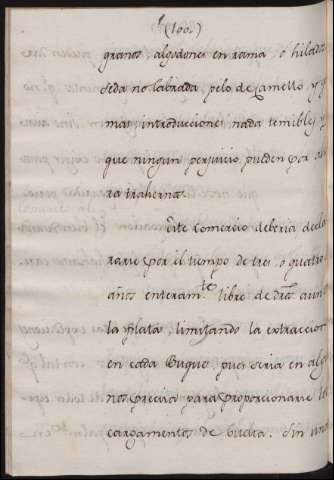 (100.)
granos, algodones en rama, o hilados
seda no labrada, pelo de Camello, y
mas, introducciones nada temibles, y
que ningun perjuicio pueden por aho
ra trahernos.
Este comercio deberia decla
rarse por el tiempo de tres, o quatro
años enteram.te libre de dros. aun
la plata, limitando la extraccion
en cada Buque, pues seria en algu
nos precisa para proporcionarse los
cargamentos de buelta. Sin una